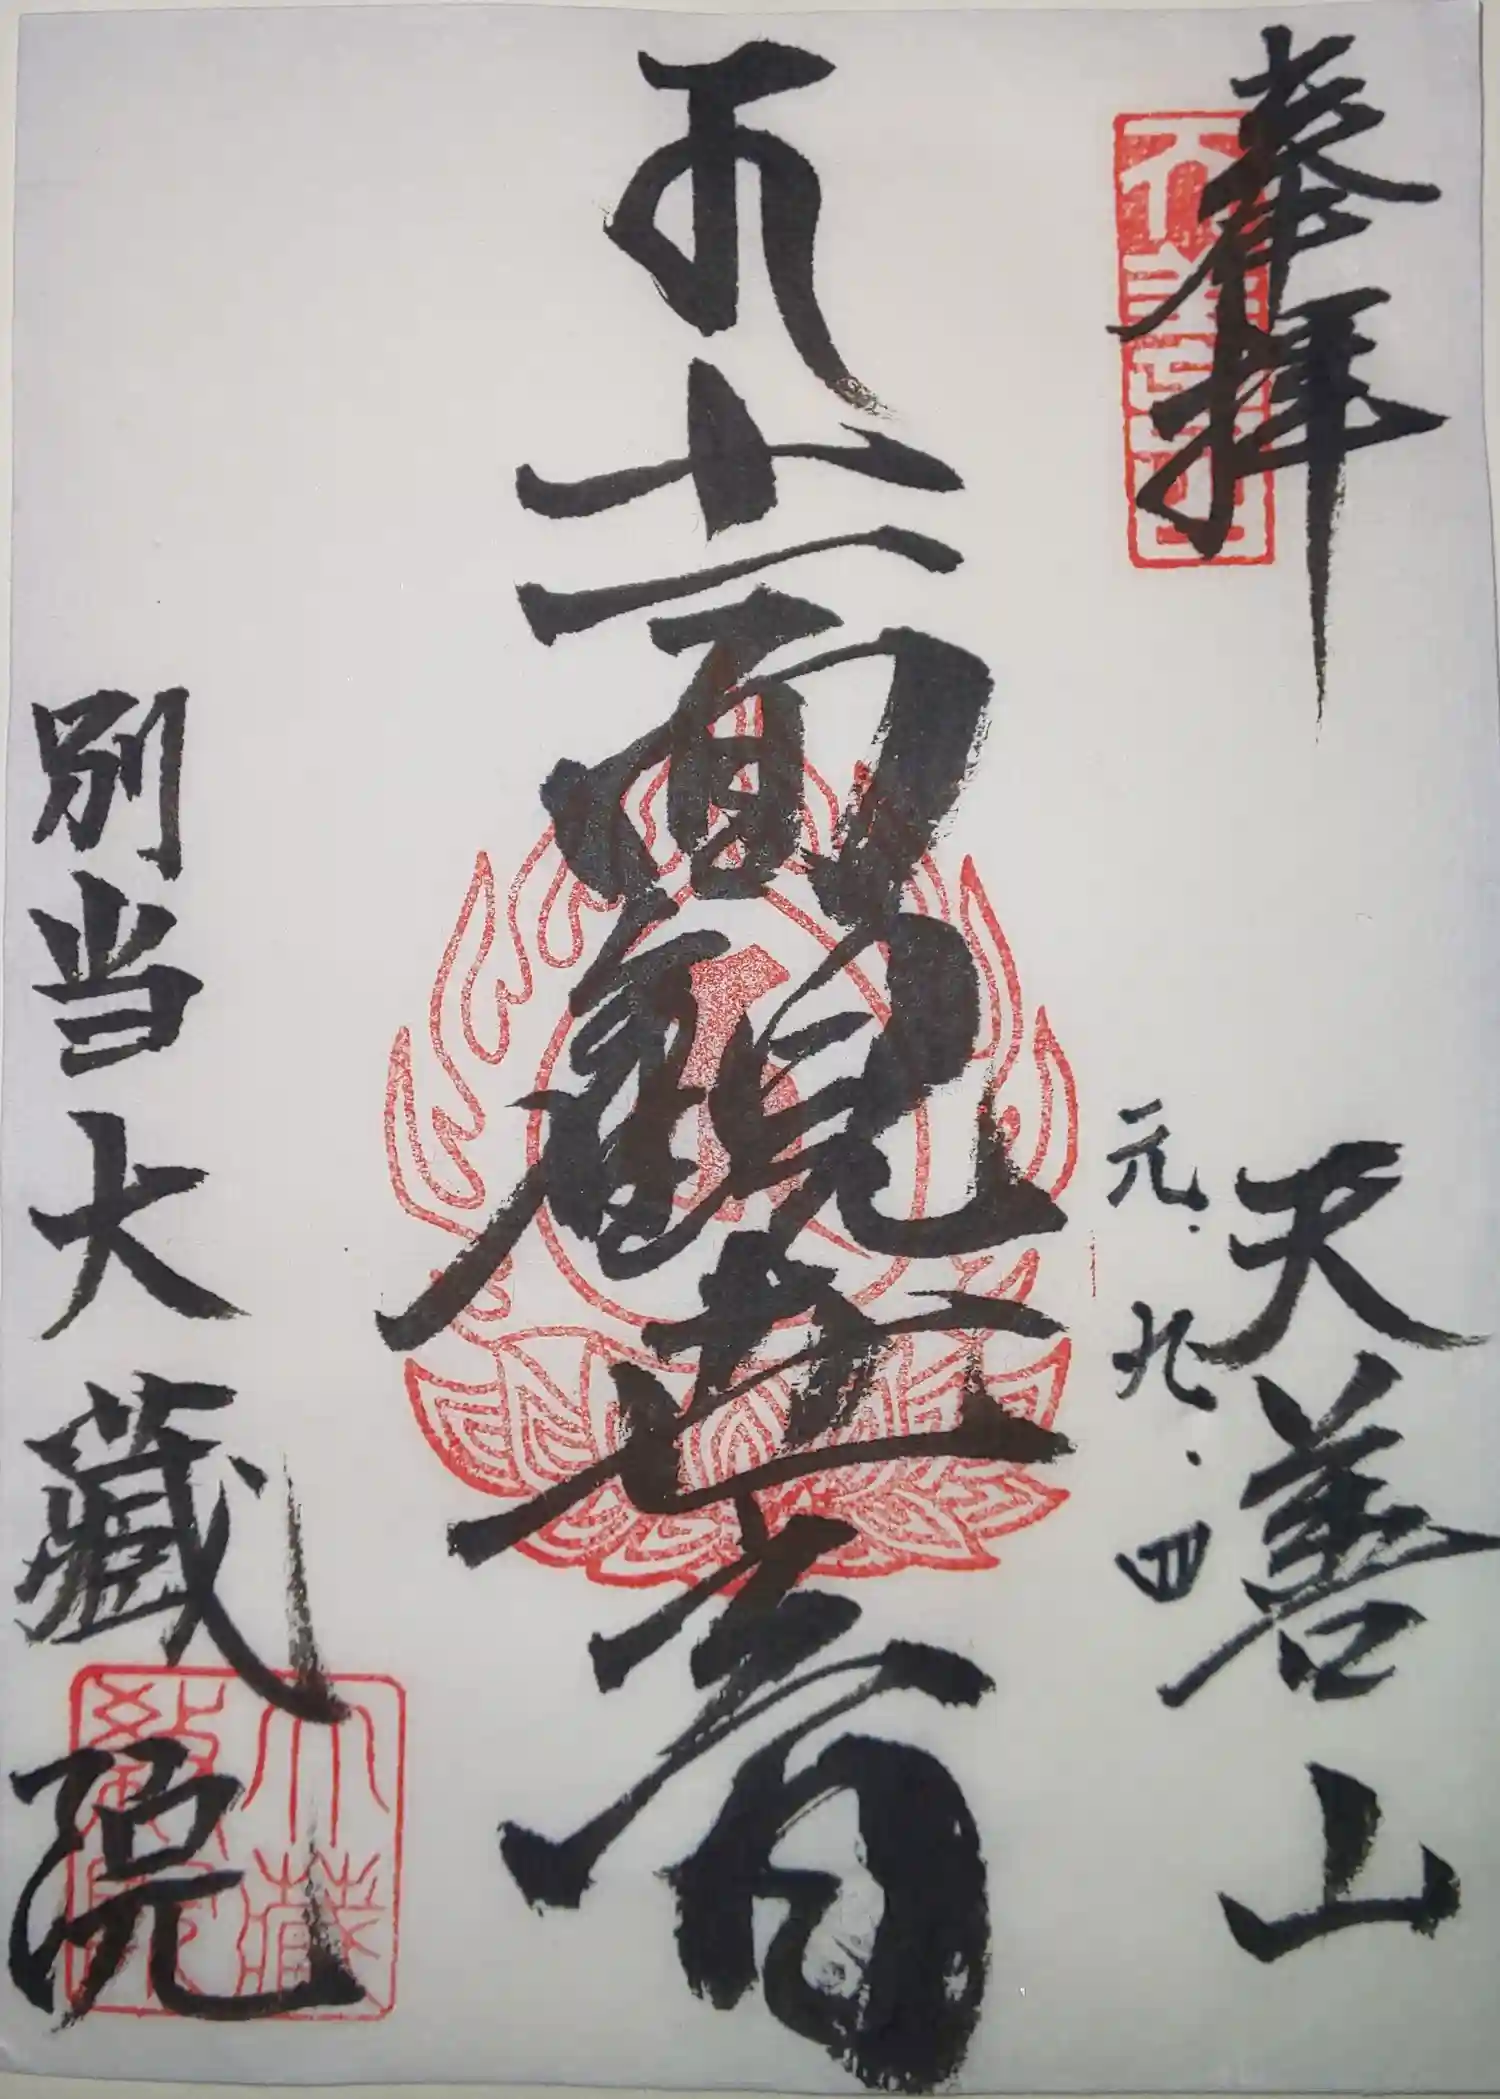 奉拝
天善山
元.九.四
十一面観世音
別当大蔵院
大蔵